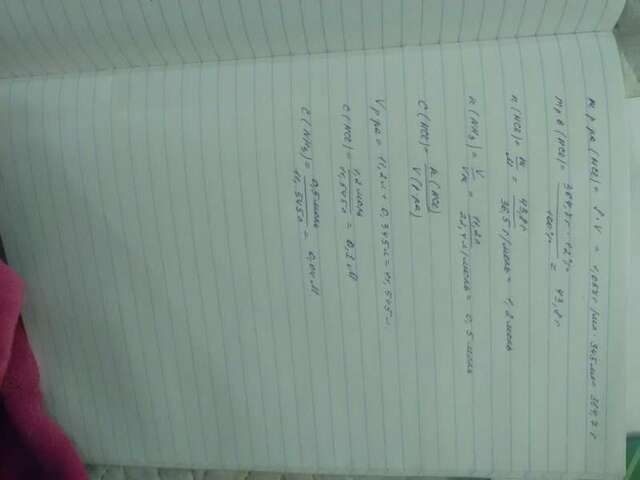 m р-ра (HCl) = ρ·V = 1,057 г/мл · 345 мл = 364,7 г
m р.в (HCl) = 364,7 г · 12% / 100% = 43,8 г
n (HCl) = m / M = 43,8 г / 36,5 г/моль = 1,2 моль
n (NH3) = V / Vm = 11,2 л / 22,4 л/моль = 0,5 моль
C (HCl) = n (HCl) / V (р-ра)
V р-ра = 11,2 л + 0,345 л = 11,545 л
C (HCl) = 1,2 моль / 11,545 л = 0,1 М
C (NH3) = 0,5 моль / 11,545 л = 0,04 М